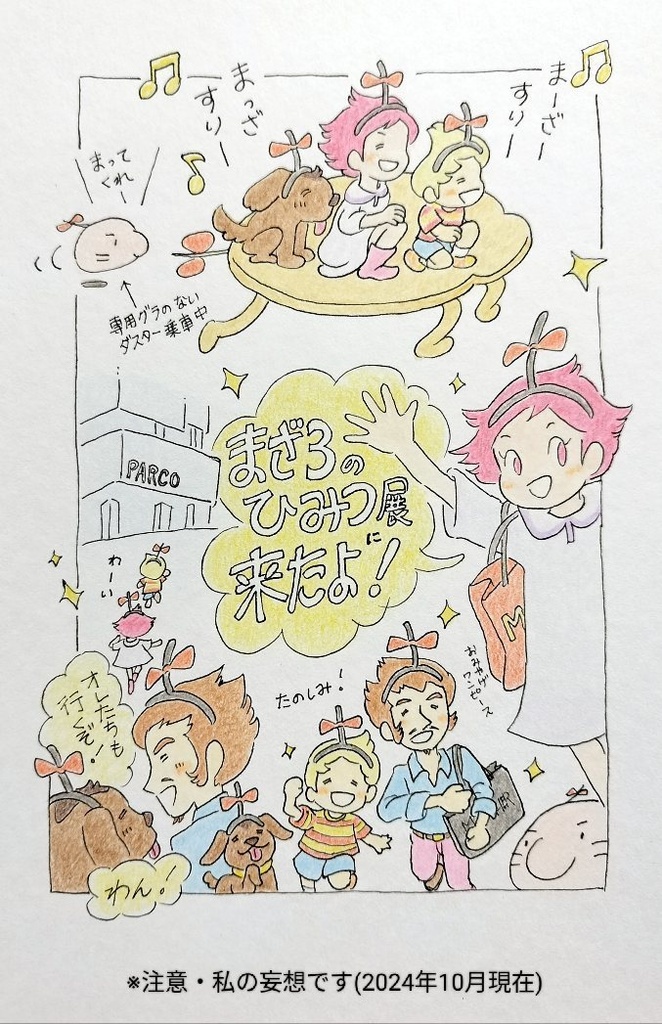 まーざー
すりー
まっざ
すりー
まって
くれー
専用グラのない
ダスター乗車中
PARCO
まざ3の
ひみつ展
に
来たよ!
わーい
M
おみやげ
ワンピース
オレたちも
行くぞ!
たのしみ!
わん!
※注意・私の妄想です(2024年10月現在)